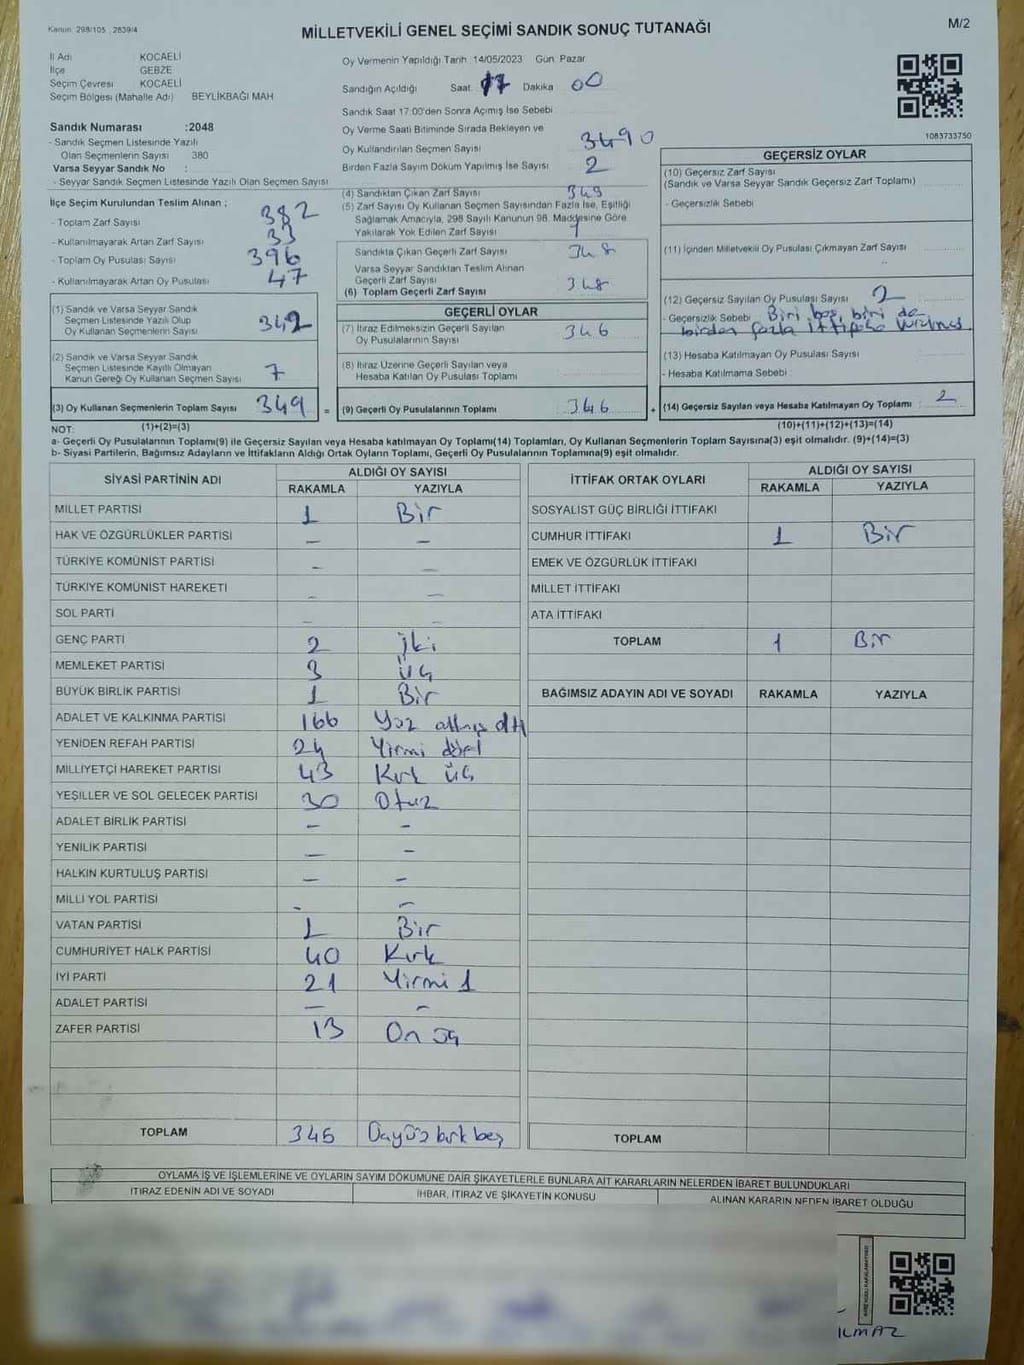 Kanun: 298/105 , 2839/4
MİLLETVEKİLİ GENEL SEÇİMİ SANDIK SONUÇ TUTANAĞI
M/2
İl Adı : KOCAELİ
İlçe : GEBZE
Seçim Çevresi : KOCAELİ
Seçim Bölgesi (Mahalle Adı) : BEYLİKBAĞI MAH
Sandık Numarası :2048
- Sandık Seçmen Listesinde Yazılı
Olan Seçmenlerin Sayısı : 380
Varsa Seyyar Sandık No :
- Seyyar Sandık Seçmen Listesinde Yazılı Olan Seçmen Sayısı :
İlçe Seçim Kurulundan Teslim Alınan ;
- Toplam Zarf Sayısı : 382
- Kullanılmayarak Artan Zarf Sayısı : 33
- Toplam Oy Pusulası Sayısı : 396
- Kullanılmayarak Artan Oy Pusulası : 47
(1) Sandık ve Varsa Seyyar Sandık
Seçmen Listesinde Yazılı Olup
Oy Kullanan Seçmenlerin Sayısı : 342
(2) Sandık ve Varsa Seyyar Sandık
Seçmen Listesinde Kayıtlı Olmayan
Kanun Gereği Oy Kullanan Seçmen Sayısı : 7
(3) Oy Kullanan Seçmenlerin Toplam Sayısı : 349 =
Oy Vermenin Yapıldığı Tarih :14/05/2023 Gün: Pazar
Sandığın Açıldığı Saat: 17 Dakika : 00
Sandık Saat 17:00'den Sonra Açılmış İse Sebebi :
Oy Verme Saati Bitiminde Sırada Bekleyen ve
Oy Kullandırılan Seçmen Sayısı : 0
Birden Fazla Sayım Döküm Yapılmış İse Sayısı : 2
(4) Sandıktan Çıkan Zarf Sayısı : 349
(5) Zarf Sayısı Oy Kullanan Seçmen Sayısından Fazla İse, Eşitliği
Sağlamak Amacıyla, 298 Sayılı Kanunun 98. Maddesine Göre
Yakılarak Yok Edilen Zarf Sayısı : 1
Sandıkta Çıkan Geçerli Zarf Sayısı : 348
Varsa Seyyar Sandıktan Teslim Alınan
Geçerli Zarf Sayısı :
(6) Toplam Geçerli Zarf Sayısı : 348
GEÇERLİ OYLAR
(7) İtiraz Edilmeksizin Geçerli Sayılan
Oy Pusulalarının Sayısı : 346
(8) İtiraz Üzerine Geçerli Sayılan veya
Hesaba Katılan Oy Pusulası Toplamı :
(9) Geçerli Oy Pusulalarının Toplamı : 346 +
1083733750
GEÇERSİZ OYLAR
(10) Geçersiz Zarf Sayısı
(Sandık ve Varsa Seyyar Sandık Geçersiz Zarf Toplamı) :
- Geçersizlik Sebebi :
(11) İçinden Milletvekili Oy Pusulası Çıkmayan Zarf Sayısı :
(12) Geçersiz Sayılan Oy Pusulası Sayısı : 2
- Geçersizlik Sebebi : Biri boş, biri de
birden fazla ittifaka
(13) Hesaba Katılmayan Oy Pusulası Sayısı :
- Hesaba Katılmama Sebebi :
(14) Geçersiz Sayılan veya Hesaba Katılmayan Oy Toplamı : 2
NOT: (1)+(2)=(3) (10)+(11)+(12)+(13)=(14)
a- Geçerli Oy Pusulalarının Toplamı(9) ile Geçersiz Sayılan veya Hesaba katılmayan Oy Toplamı(14) Toplamları, Oy Kullanan Seçmenlerin Toplam Sayısına(3) eşit olmalıdır. (9)+(14)=(3)
b- Siyasi Partilerin, Bağımsız Adayların ve İttifakların Aldığı Ortak Oyların Toplamı, Geçerli Oy Pusulalarının Toplamına(9) eşit olmalıdır.
SİYASİ PARTİNİN ADI ALDIĞI OY SAYISI
RAKAMLA YAZIYLA
MİLLET PARTİSİ 1 Bir
HAK VE ÖZGÜRLÜKLER PARTİSİ – –
TÜRKİYE KOMÜNİST PARTİSİ – –
TÜRKİYE KOMÜNİST HAREKETİ – –
SOL PARTİ – –
GENÇ PARTİ 2 İki
MEMLEKET PARTİSİ 3 Üç
BÜYÜK BİRLİK PARTİSİ 1 Bir
ADALET VE KALKINMA PARTİSİ 166 Yüz altmış altı
YENİDEN REFAH PARTİSİ 24 Yirmi dört
MİLLİYETÇİ HAREKET PARTİSİ 43 Kırk üç
YEŞİLLER VE SOL GELECEK PARTİSİ 30 Otuz
ADALET BİRLİK PARTİSİ – –
YENİLİK PARTİSİ – –
HALKIN KURTULUŞ PARTİSİ – –
MİLLİ YOL PARTİSİ – –
VATAN PARTİSİ 1 Bir
CUMHURİYET HALK PARTİSİ 40 Kırk
İYİ PARTİ 21 Yirmi 1
ADALET PARTİSİ – –
ZAFER PARTİSİ 13 On üç
TOPLAM 345
İTTİFAK ORTAK OYLARI ALDIĞI OY SAYISI
RAKAMLA YAZIYLA
SOSYALİST GÜÇ BİRLİĞİ İTTİFAKI
CUMHUR İTTİFAKI 1 Bir
EMEK VE ÖZGÜRLÜK İTTİFAKI
MİLLET İTTİFAKI
ATA İTTİFAKI
TOPLAM 1 Bir
BAĞIMSIZ ADAYIN ADI VE SOYADI RAKAMLA YAZIYLA
TOPLAM
OYLAMA İŞ VE İŞLEMLERİNE VE OYLARIN SAYIM DÖKÜMÜNE DAİR ŞİKAYETLERLE BUNLARA AİT KARARLARIN NELERDEN İBARET BULUNDUKLARI
İTİRAZ EDENİN ADI VE SOYADI İHBAR, İTİRAZ VE ŞİKAYETİN KONUSU ALINAN KARARIN NEDEN İBARET OLDUĞU